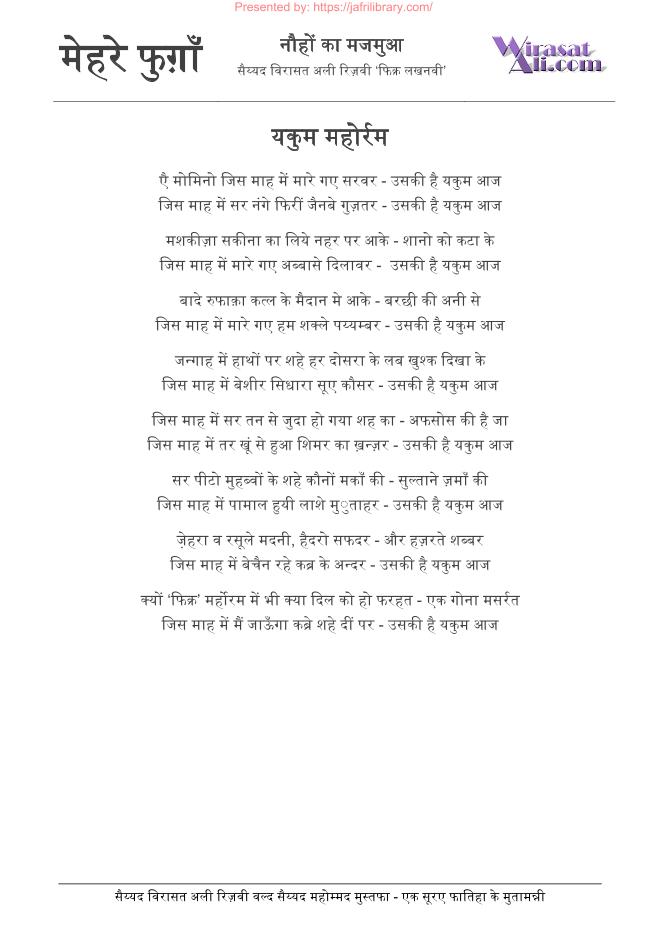 Presented by: https://jafrilibrary.com/
मेहरे फुग़ाँ
नौहों का मजमुआ
सैय्यद विरासत अली रिज़वी ‘फिक्र लखनवी’
Wirasat
Ali.com
यकुम महोर्रम
एै मोमिनो जिस माह में मारे गए सरवर - उसकी है यकुम आज
जिस माह में सर नंगे फिरीं जैनबे गुज़तर - उसकी है यकुम आज
मशकीज़ा सकीना का लिये नहर पर आके - शानो को कटा के
जिस माह में मारे गए अब्बासे दिलावर - उसकी है यकुम आज
बादे रुफाक़ा कत्ल के मैदान मे आके - बरछी की अनी से
जिस माह में मारे गए हम शक्ले पय्यम्बर - उसकी है यकुम आज
जन्गाह में हाथों पर शहे हर दोसरा के लब खुश्क दिखा के
जिस माह में बेशीर सिधारा सूए कौसर - उसकी है यकुम आज
जिस माह में सर तन से जुदा हो गया शह का - अफसोस की है जा
जिस माह में तर खूं से हुआ शिमर का ख़न्ज़र - उसकी है यकुम आज
सर पीटो मुहब्बों के शहे कौनों मकाँ की - सुल्ताने ज़माँ की
जिस माह में पामाल हुयी लाशे मुुताहर - उसकी है यकुम आज
ज़ेहरा व रसूले मदनी, हैदरो सफदर - और हज़रते शब्बर
जिस माह में बेचैन रहे कब्र के अन्दर - उसकी है यकुम आज
क्यों ‘फिक्र’ मर्होरम में भी क्या दिल को हो फरहत - एक गोना मसर्रत
जिस माह में मैं जाऊँगा कब्रे शहे दीं पर - उसकी है यकुम आज
सैय्यद विरासत अली रिज़वी वल्द सैय्यद महोम्मद मुस्तफा - एक सूरए फातिहा के मुतामन्नी